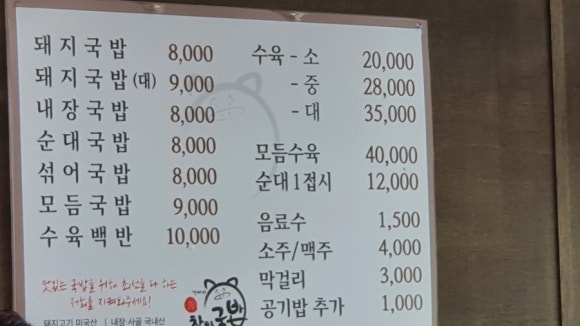 돼지국밥 8,000
돼지국밥(대) 9,000
내장국밥 8,000
순대국밥 8,000
섞어국밥 8,000
모듬국밥 9,000
수육백반 10,000
맛있는 국밥을 위해 최선을 다 하는
저희를 지켜봐주세요!
돼지고기 미국산 | 내장·사골 국내산
수육 - 소 20,000
- 중 28,000
- 대 35,000
모듬수육 40,000
순대 1접시 12,000
음료수 1,500
소주/맥주 4,000
막걸리 3,000
공기밥 추가 1,000
국밥